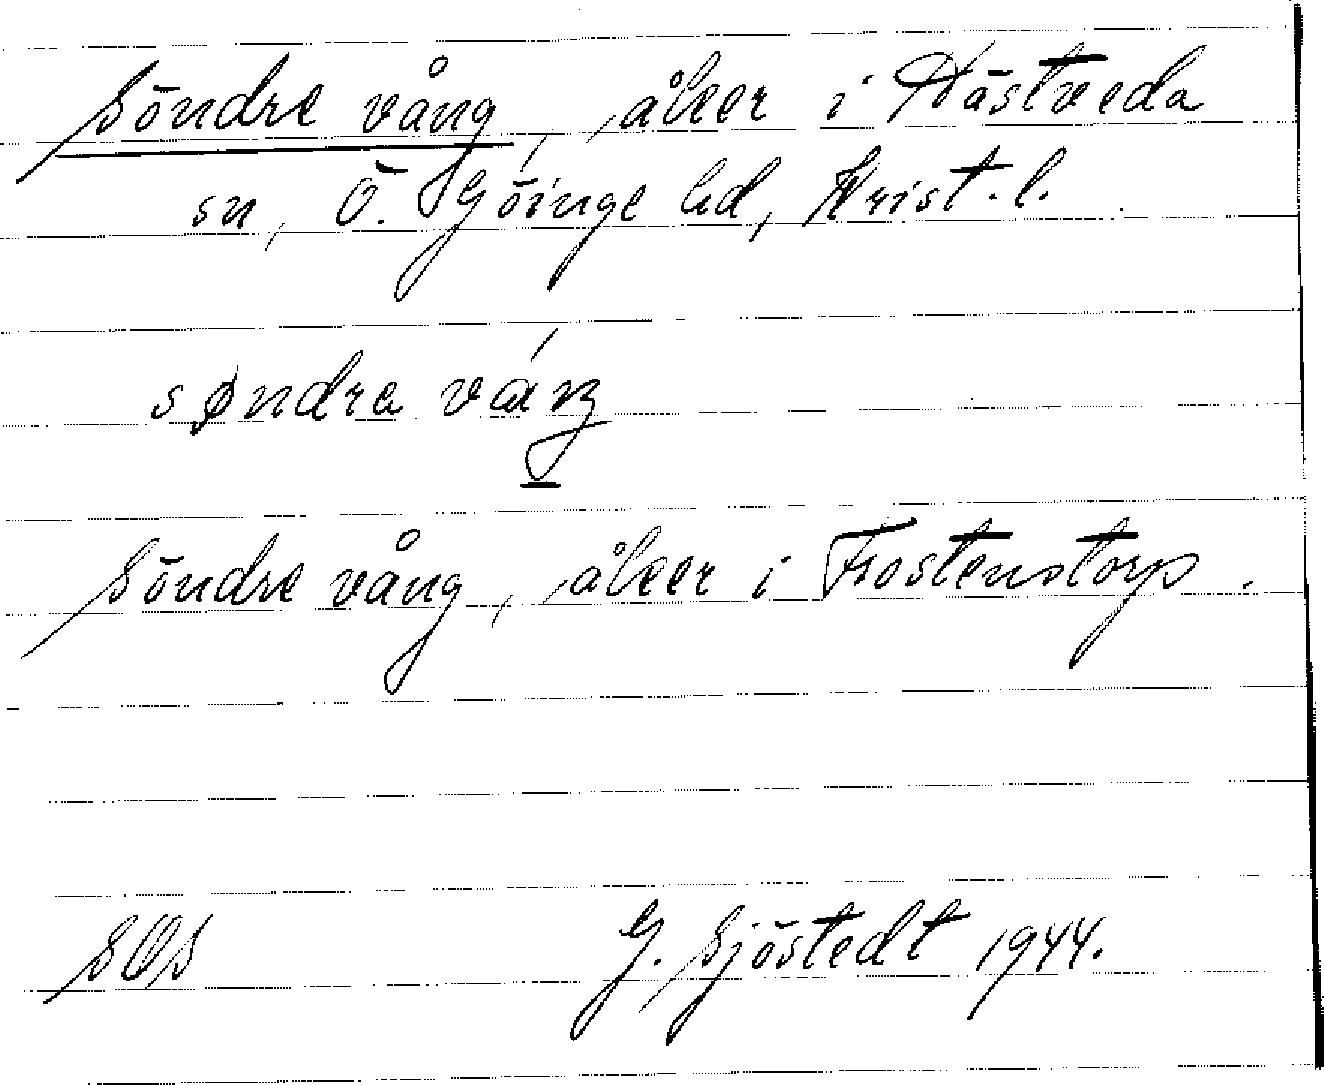 Söndre vång, åker i Hästveda
sn, Ö. Göinge hd, Krist. l.
søndra váŋ
Söndre vång, åker i Frostentorp.
SOS G. Sjöstedt 1944.